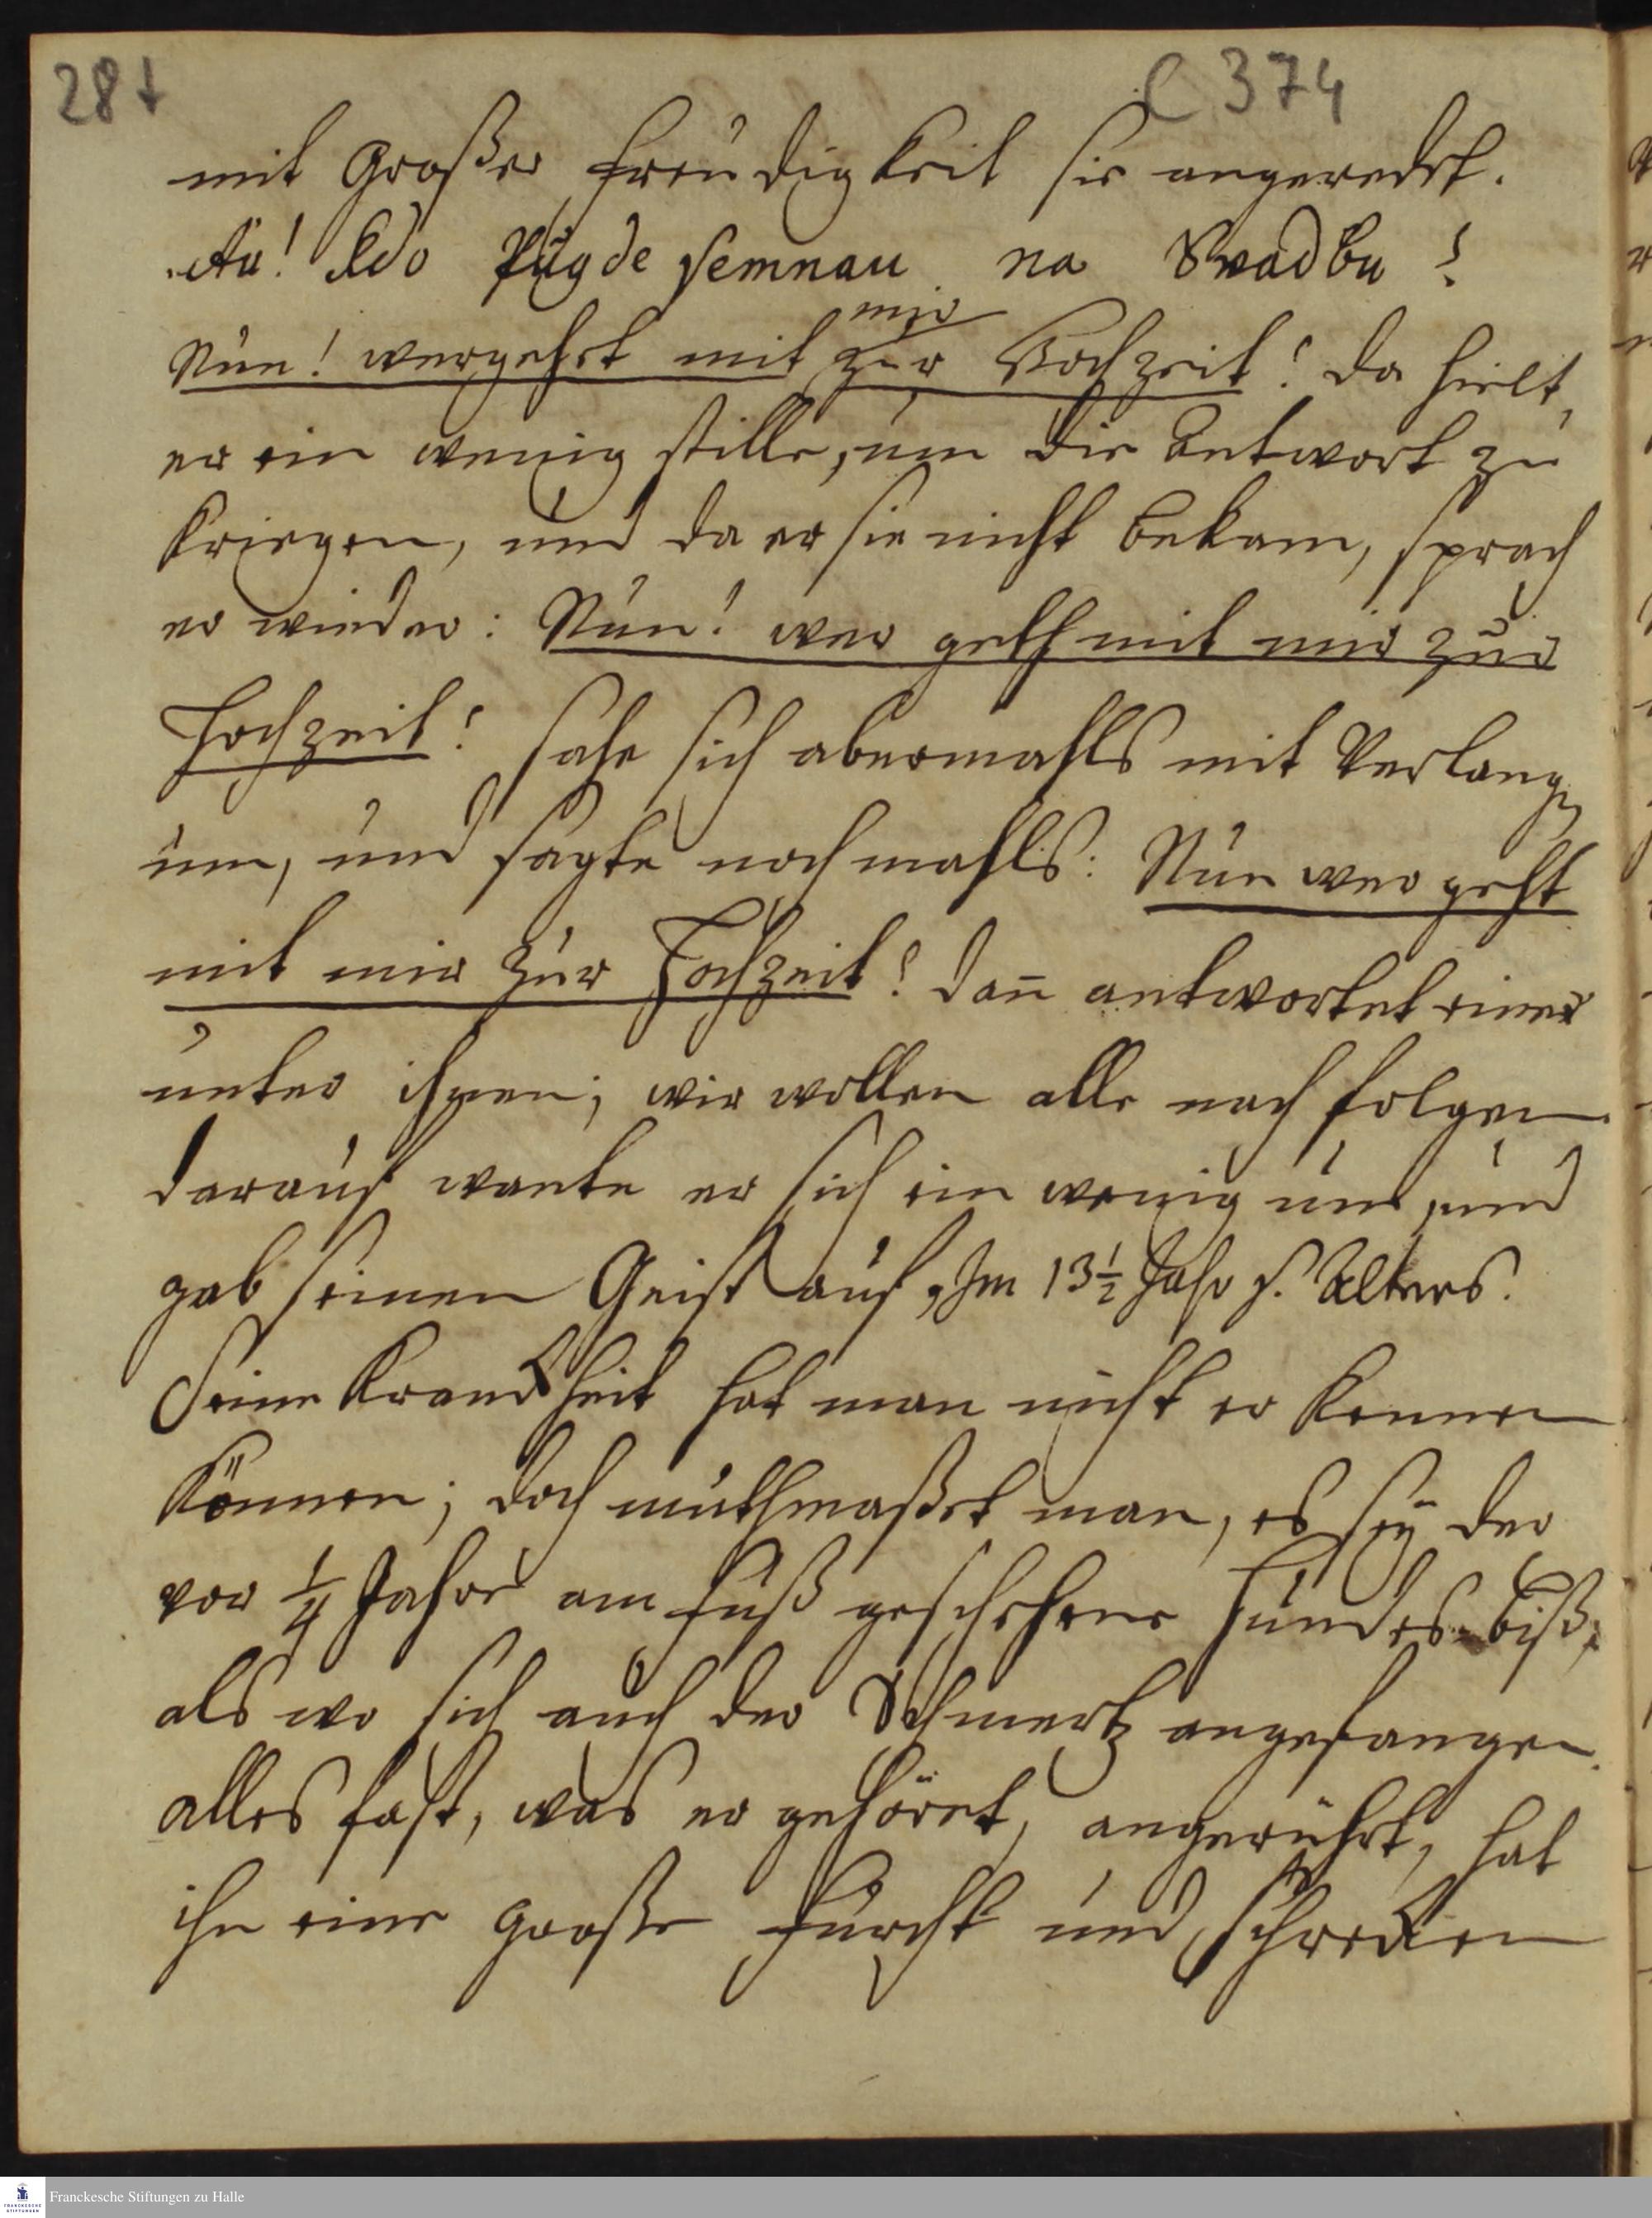 287
C 374
mit Großer freudigkeit sie angeredet.
Au! Kdo Pügde semnau na Swadbu?
mir
Nun! wergehet mit zur Hochzeit? da hielt
er ein wenig stille, um die Antwort zu
kriegen, und da er sie nicht bekam, sprach
er wieder: Nun! wer geth mit mir zur
Hochzeit? sahe sich abermahls mit Verlangen
um, und sagte nochmahls: Nun wer geht
mit mir zur Hochzeit? dan̄ antwortet einer
unter ihnen; wir wollen alle nach folgen.
darauf wante er sich ein wenig um, und
gab seinen Geist auf, Im 13½ Jahr s. Alters.
Seine Kranckheit hat man nicht er kennen
können; doch muthmaßet man, es seÿ der
vor ¼ Jahr am fuß geschehene Hundes-biß,
als wo sich auch der Schmertz angefangen.
alles fast, was er gehöret, angerührt, hat
ihn eine große furcht und Schrecken
Franckesche Stiftungen zu Halle